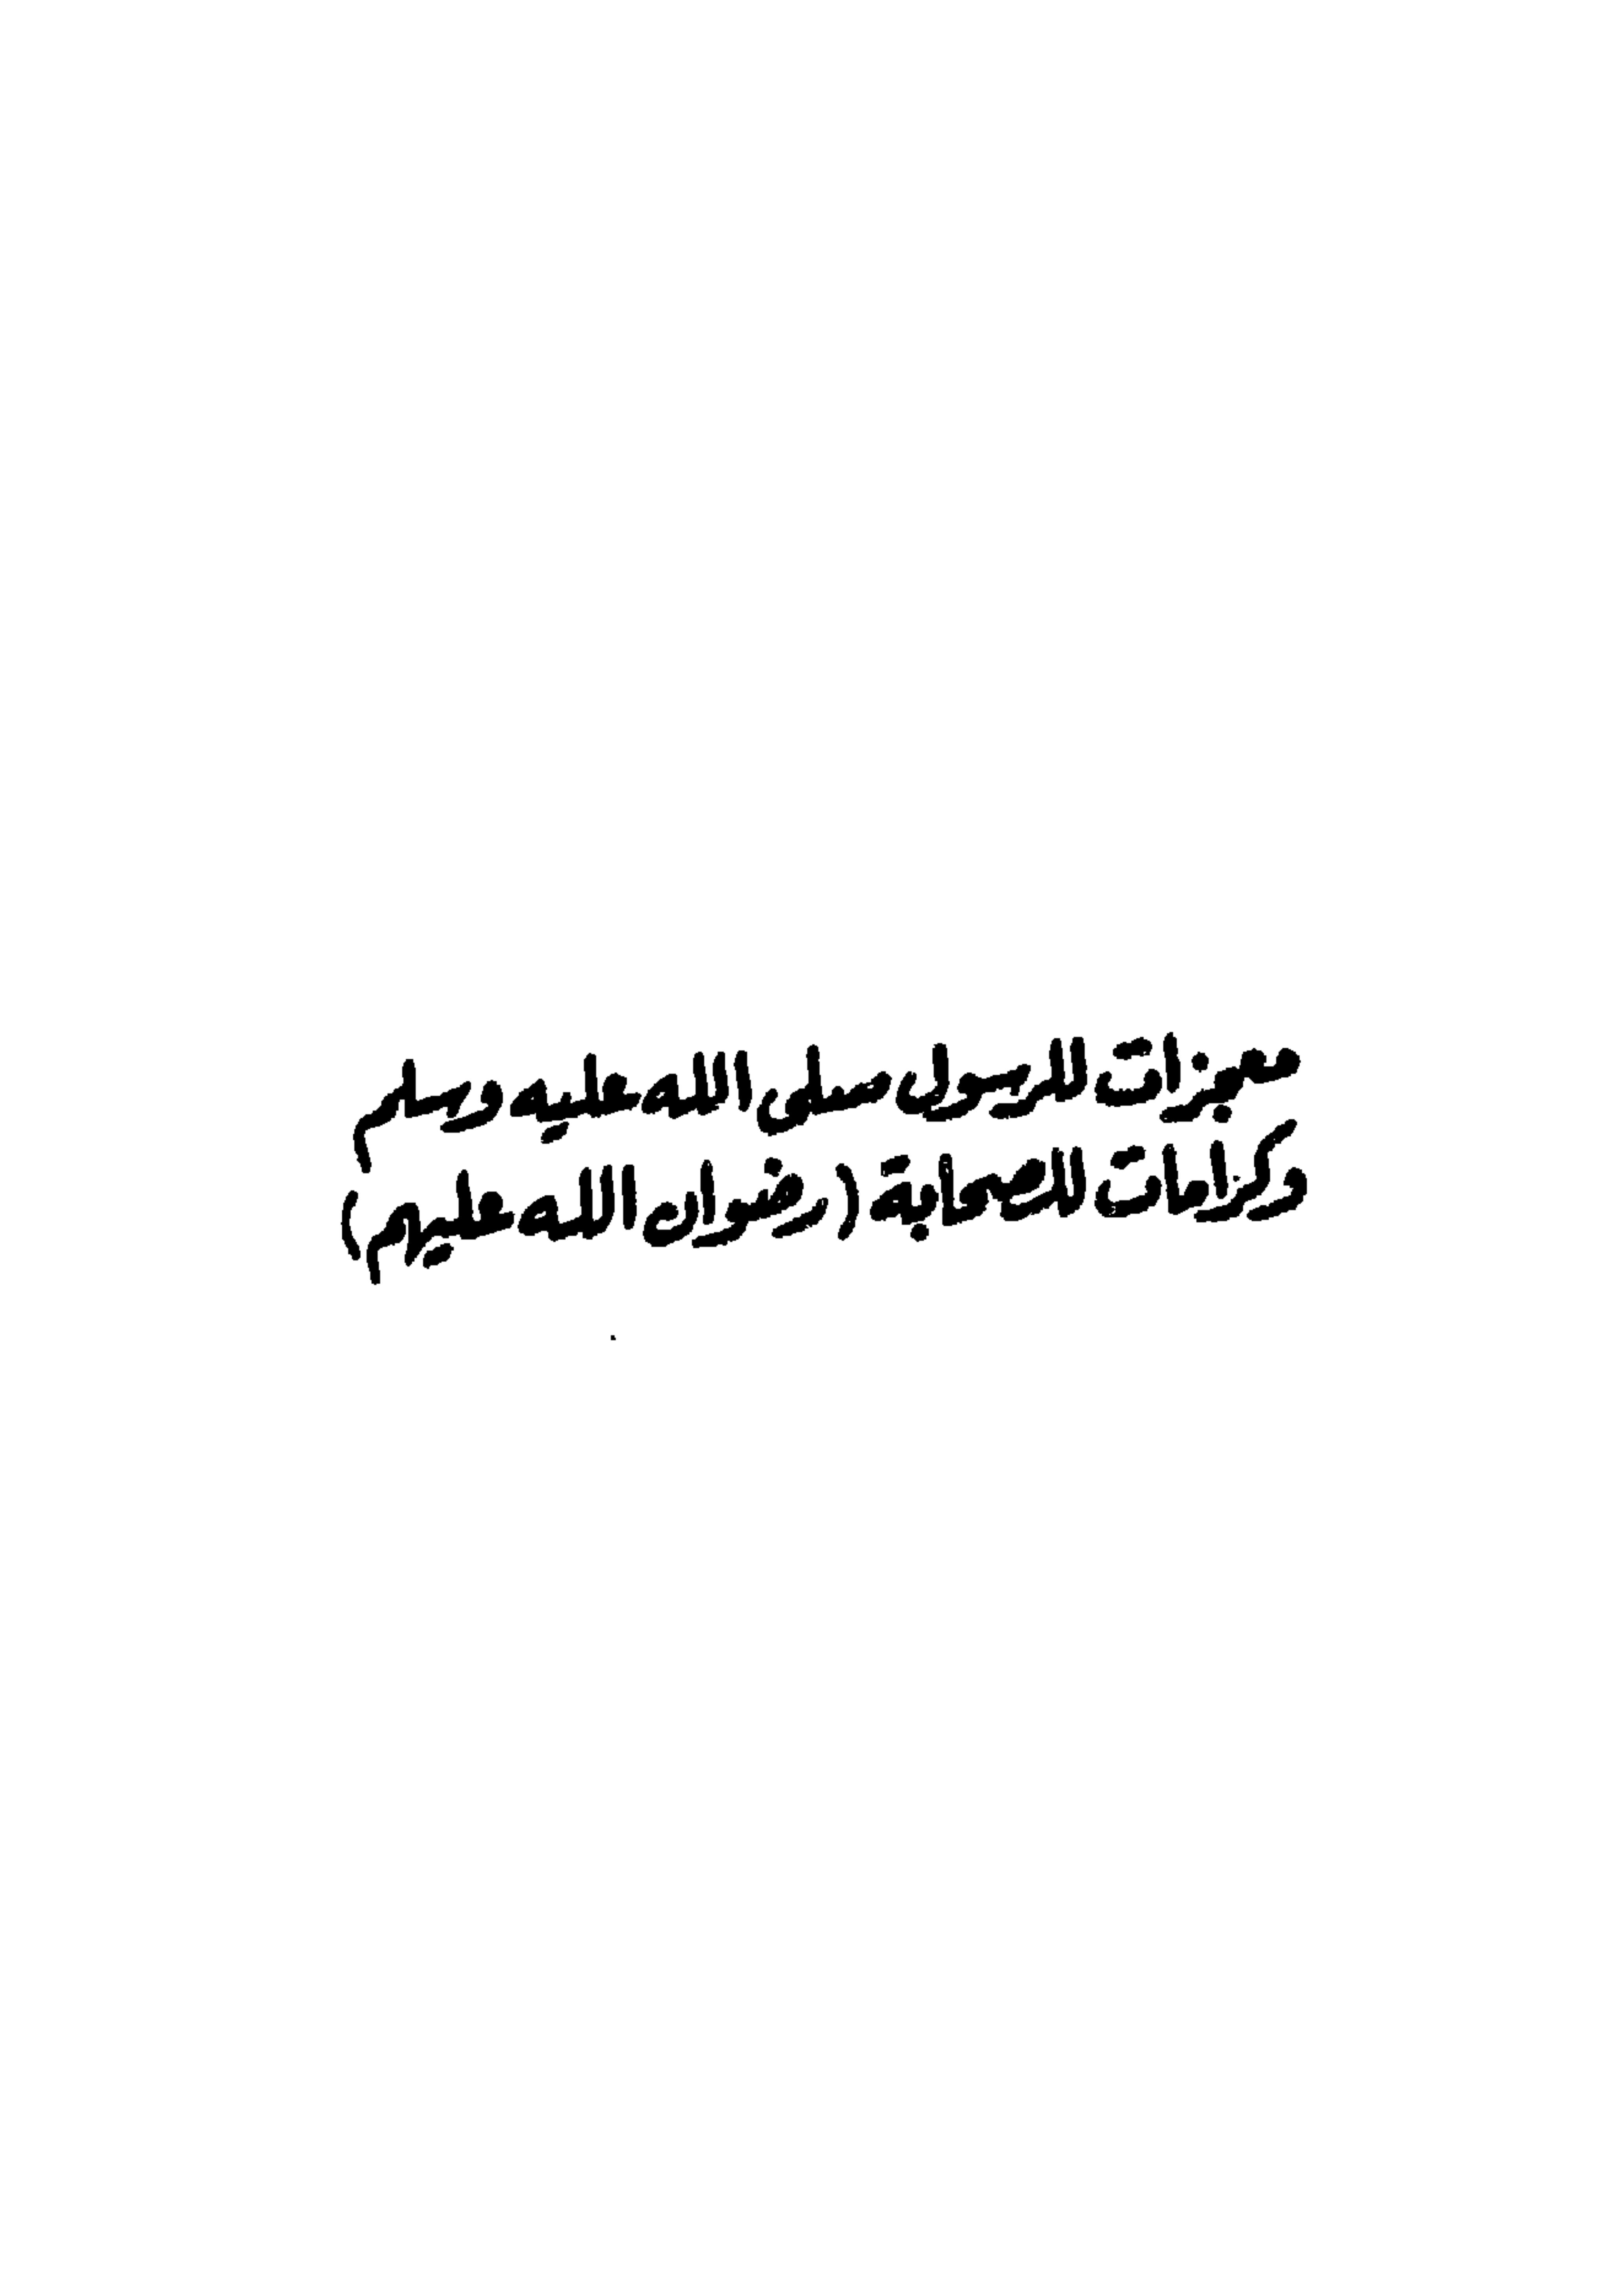 معجزات الرسول صلى الله عليه وسلم
وكرامات الصحابة (رضوان الله عليهم)